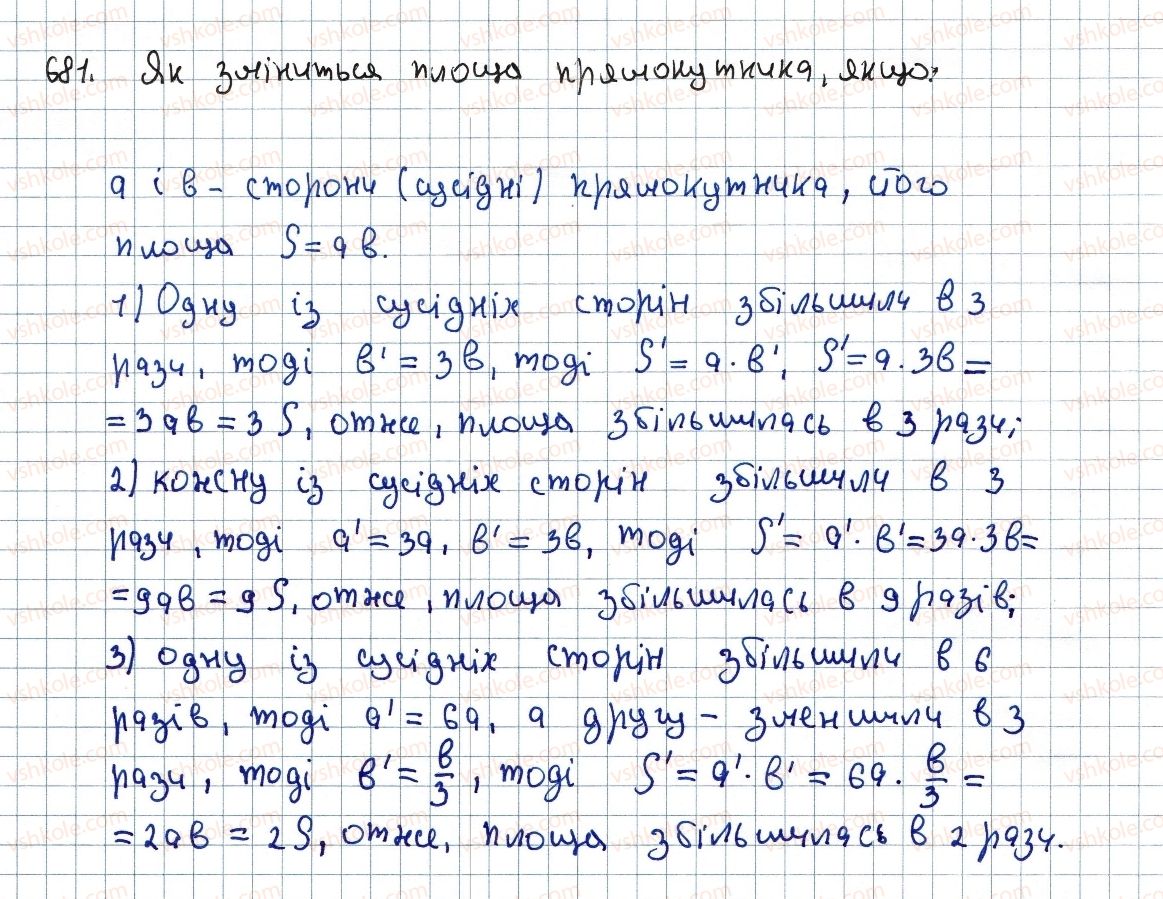 681. Як зміниться площа прямокутника, якщо:
a і в - сторони (сусідні) прямокутника, його
площа S = aв.
1) Одну із сусідніх сторін збільшили в 3
рази, тоді в' = 3в, тоді S' = a · в', S' = a · 3в =
= 3aв = 3S, отже, площа збільшилась в 3 рази;
2) кожну із сусідніх сторін збільшили в 3
рази, тоді a' = 3a, в' = 3в, тоді S' = a' · в' = 3a · 3в =
= 9aв = 9S, отже, площа збільшилась в 9 разів;
3) одну із сусідніх сторін збільшили в 6
разів, тоді a' = 6a, а другу - зменшили в 3
рази, тоді в' = в/3, тоді S' = a' · в' = 6a · в/3 =
= 2aв = 2S, отже, площа збільшилась в 2 рази.